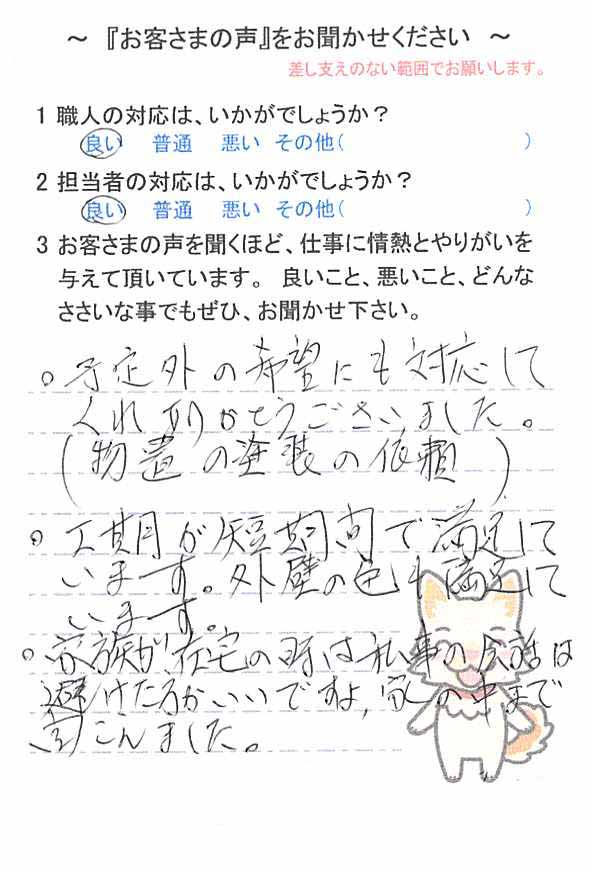 ～ 『お客さまの声』をお聞かせください ～
差し支えのない範囲でお願いします。
1 職人の対応は、いかがでしょうか？
良い 普通 悪い その他( )
2 担当者の対応は、いかがでしょうか？
良い 普通 悪い その他( )
3 お客さまの声を聞くほど、仕事に情熱とやりがいを
与えて頂いています。 良いこと、悪いこと、どんな
ささいな事でもぜひ、お聞かせ下さい。
○ 予定外の希望にも対応して
くれありがとうございました。
(物置の塗装の依頼)
○ 工期が短期間で満足して
います。外壁の色も満足して
います。
○ 家族が在宅の時は私事の会話は
避けた方がいいですよ,家の中まで
こんました。